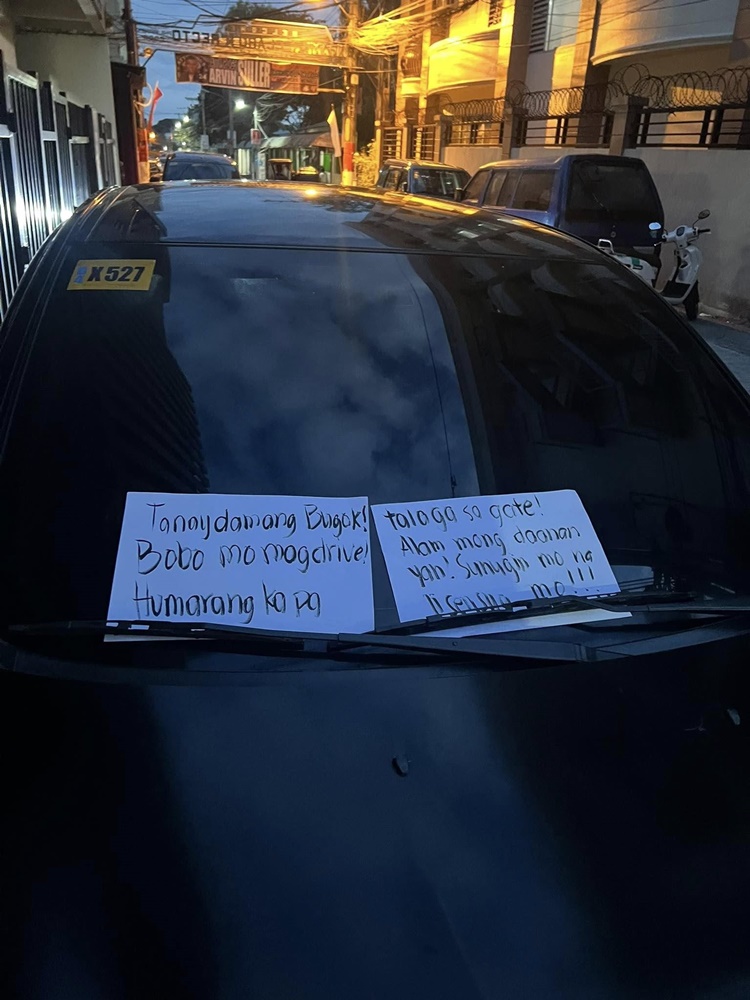 ARVIN SULLER
X527
Tanaydamang Bugok!
Bobo mo magdrive!
Humarang ka pa
talaga sa gate!
Alam mong daanan
yan! Sunugin mo na
lisensya mo!!!